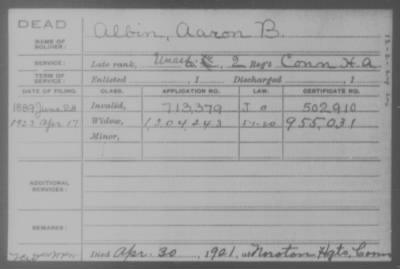 DEAD
NAME OF SOLDIER: Albin, Aaron B.
SERVICE: Late rank, Co. , 2 Reg't Conn H. A
TERM OF SERVICE: Enlisted , 1 Discharged , 1
DATE OF FILING. CLASS. APPLICATION NO. LAW. CERTIFICATE NO.
1889 June 28 Invalid, 713,379 502,910
1923 Apr. 17 Widow, 1,204,243 955,031
Minor,
ADDITIONAL SERVICES:
REMARKS:
Died Apr. 30, 1921, at Noroton Hgts, Conn